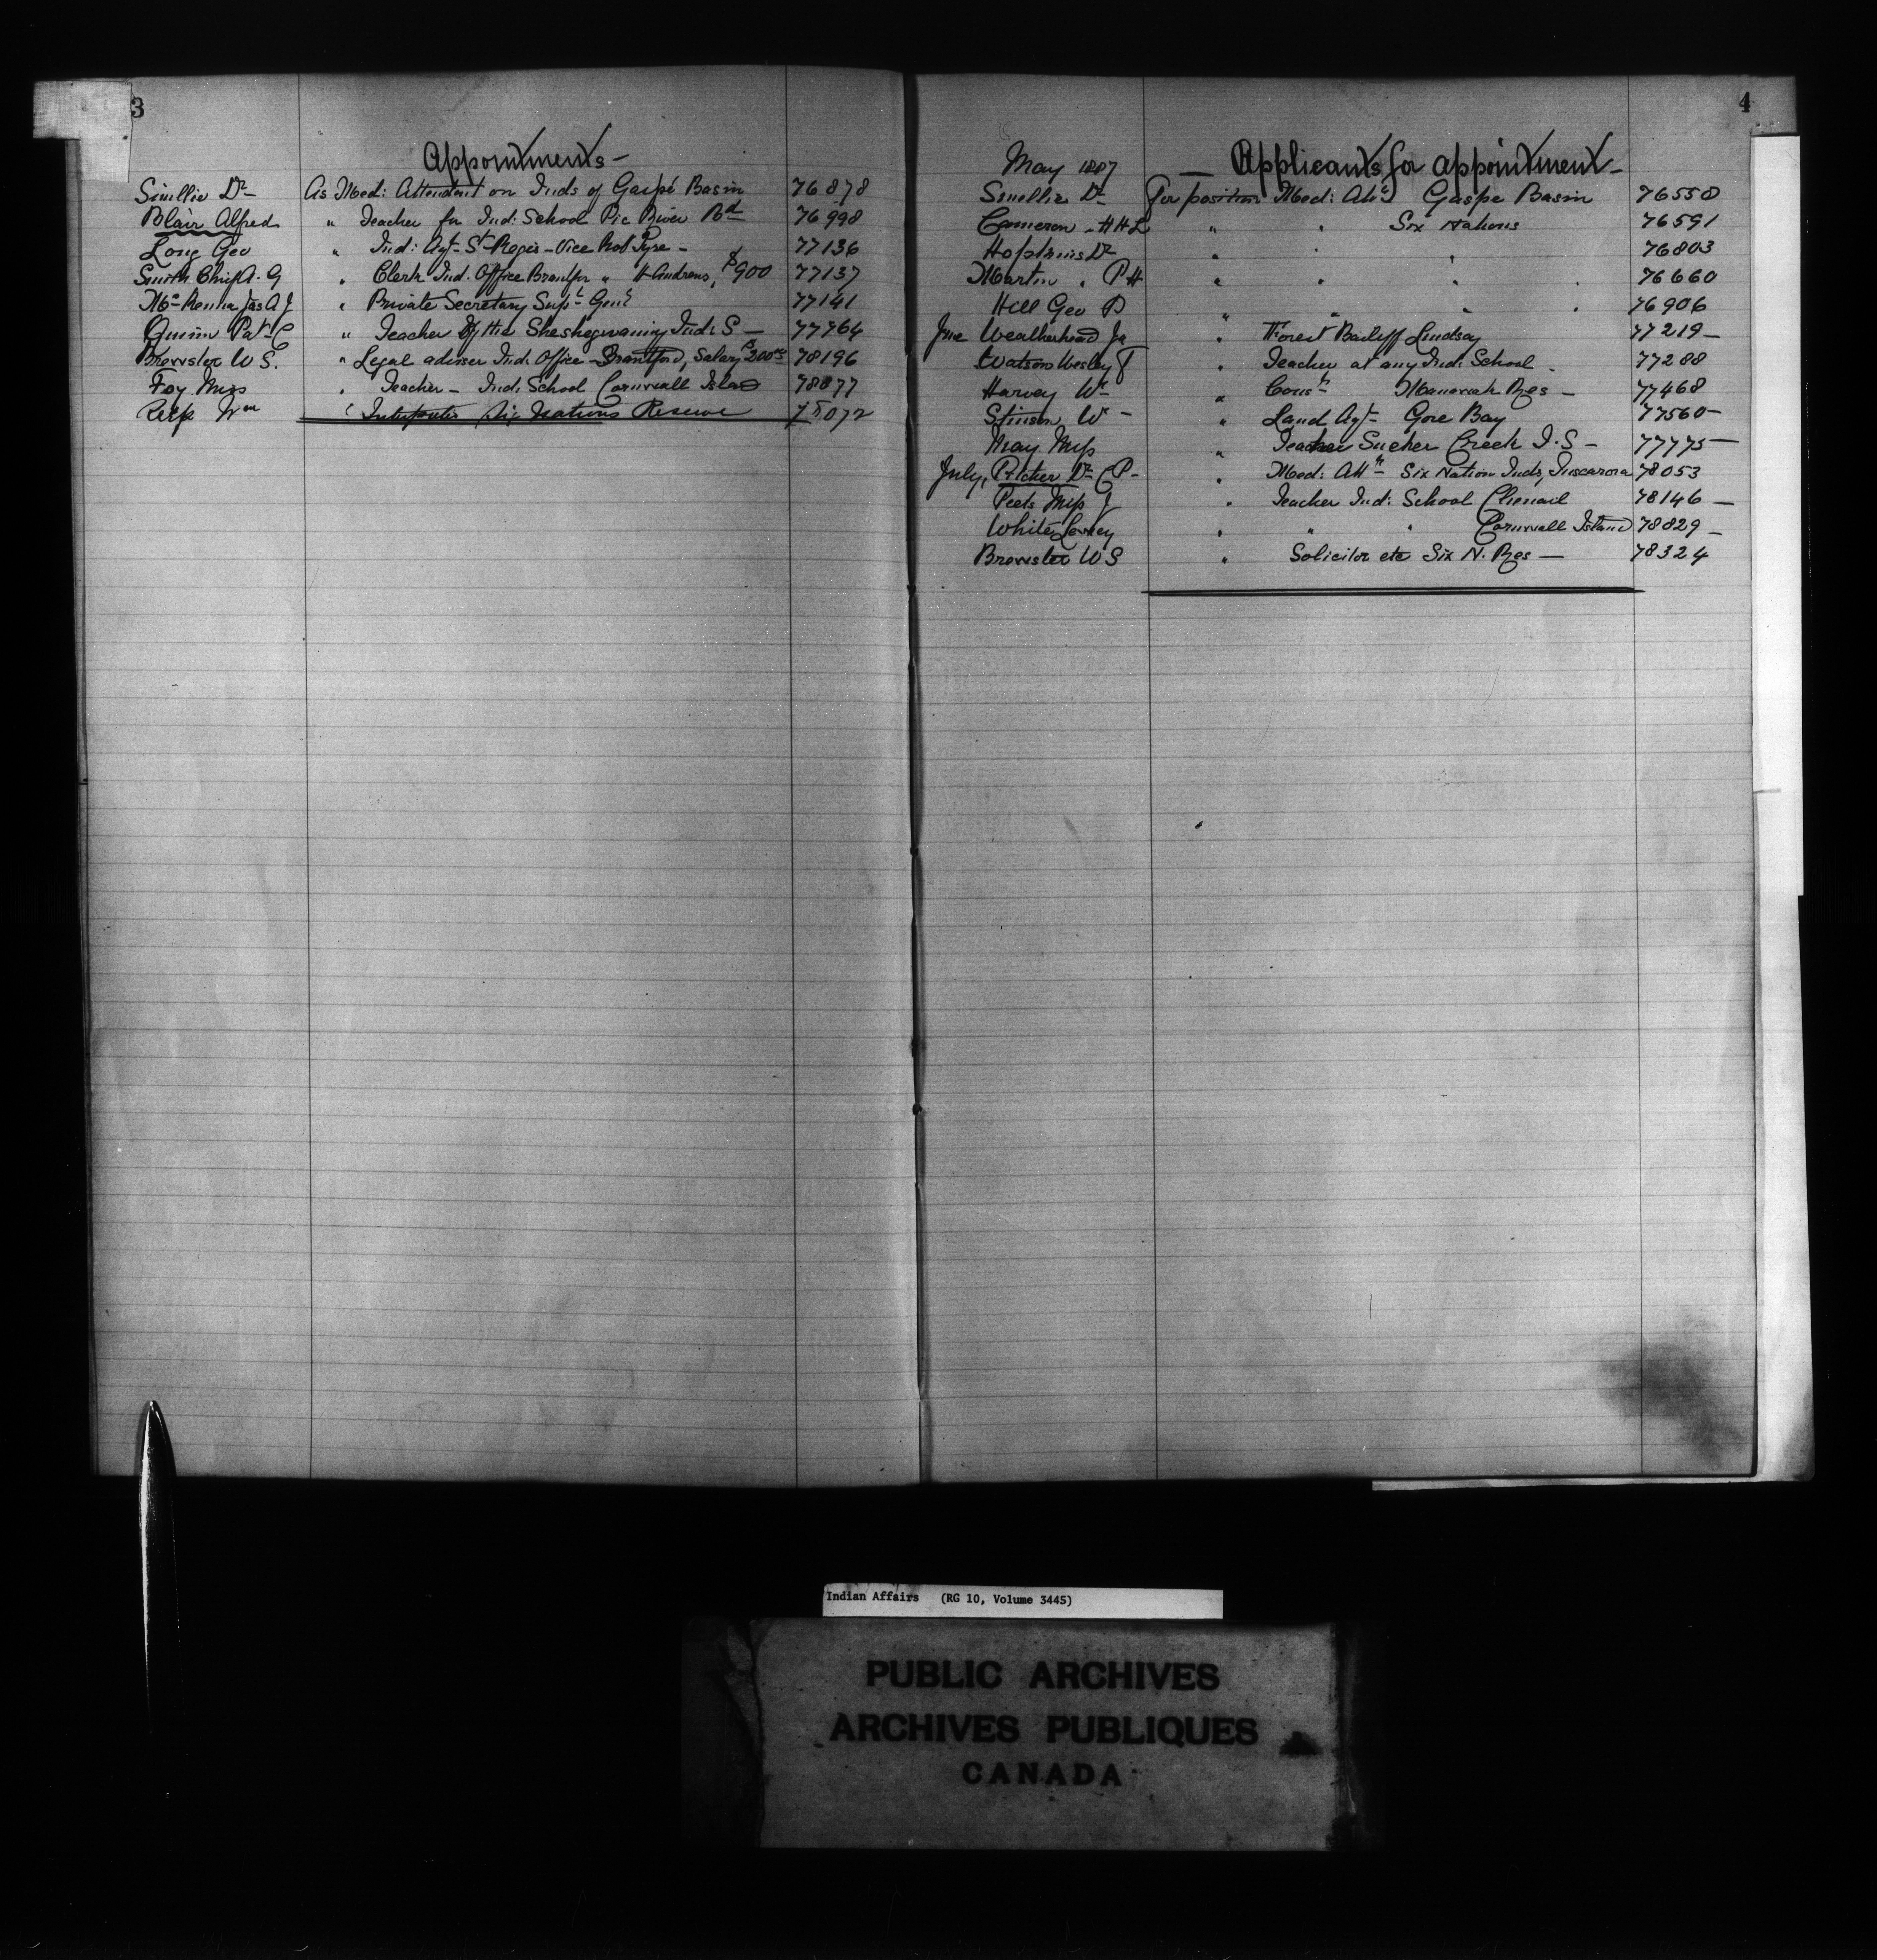 3
Appointments -
Smellie Dr As Med: Attendant on Inds of Gaspé Basin 76878
Blair Alfred " Teacher for Ind: School Pic River Bd 76998
Long Geo " Ind: Agt - St Regis - Vice Rob Pyre - 77136
Smith Chief A. G " Clerk Ind. Office Brantfor " H Andrews, $900 77137
McKenna Jas A J " Private Secretary Supt Genl 77141
Quinn Patk C " Teacher of the Sheshegwaning Ind: S - 77764
Brewster W S. " Legal adviser Ind. Office - Brantford, Salary $200.00 78196
Foy Miss " Teacher - Ind: School Cornwall Island 78877
Wm " Six Nations Reserve 072
4
May 1887 - Applicants for appointment -
Smellie Dr For position Med: Att Gaspe Basin 76558
Cameron - H H L " " Six Nations 76591
Hopkins Dr " " " 76803
Martin " P H " " " " 76660
Hill Geo D " " " " 76906
June Weatherhead Ja " Forest Bailiff Lindsay 77219 -
Watson Wesley T " Teacher at any Ind: School - 77288
Harvey Wm " Res - 77468
Stinson Wm - " Land Agt - Gore Bay 77560 -
May Miss " Teacher Sucker Creek I. S - 77775 -
July, Pitcher Dr C P - " Med: Att - Six Nation Inds, Tuscarora 78053
Peets Miss J " Teacher Ind: School Chenail 78146 -
White " " " Cornwall Island 78829 -
Brewster W S " Solicitor etc Six N. Res - 78324
Indian Affairs (RG 10, Volume 3445)
PUBLIC ARCHIVES
ARCHIVES PUBLIQUES
CANADA